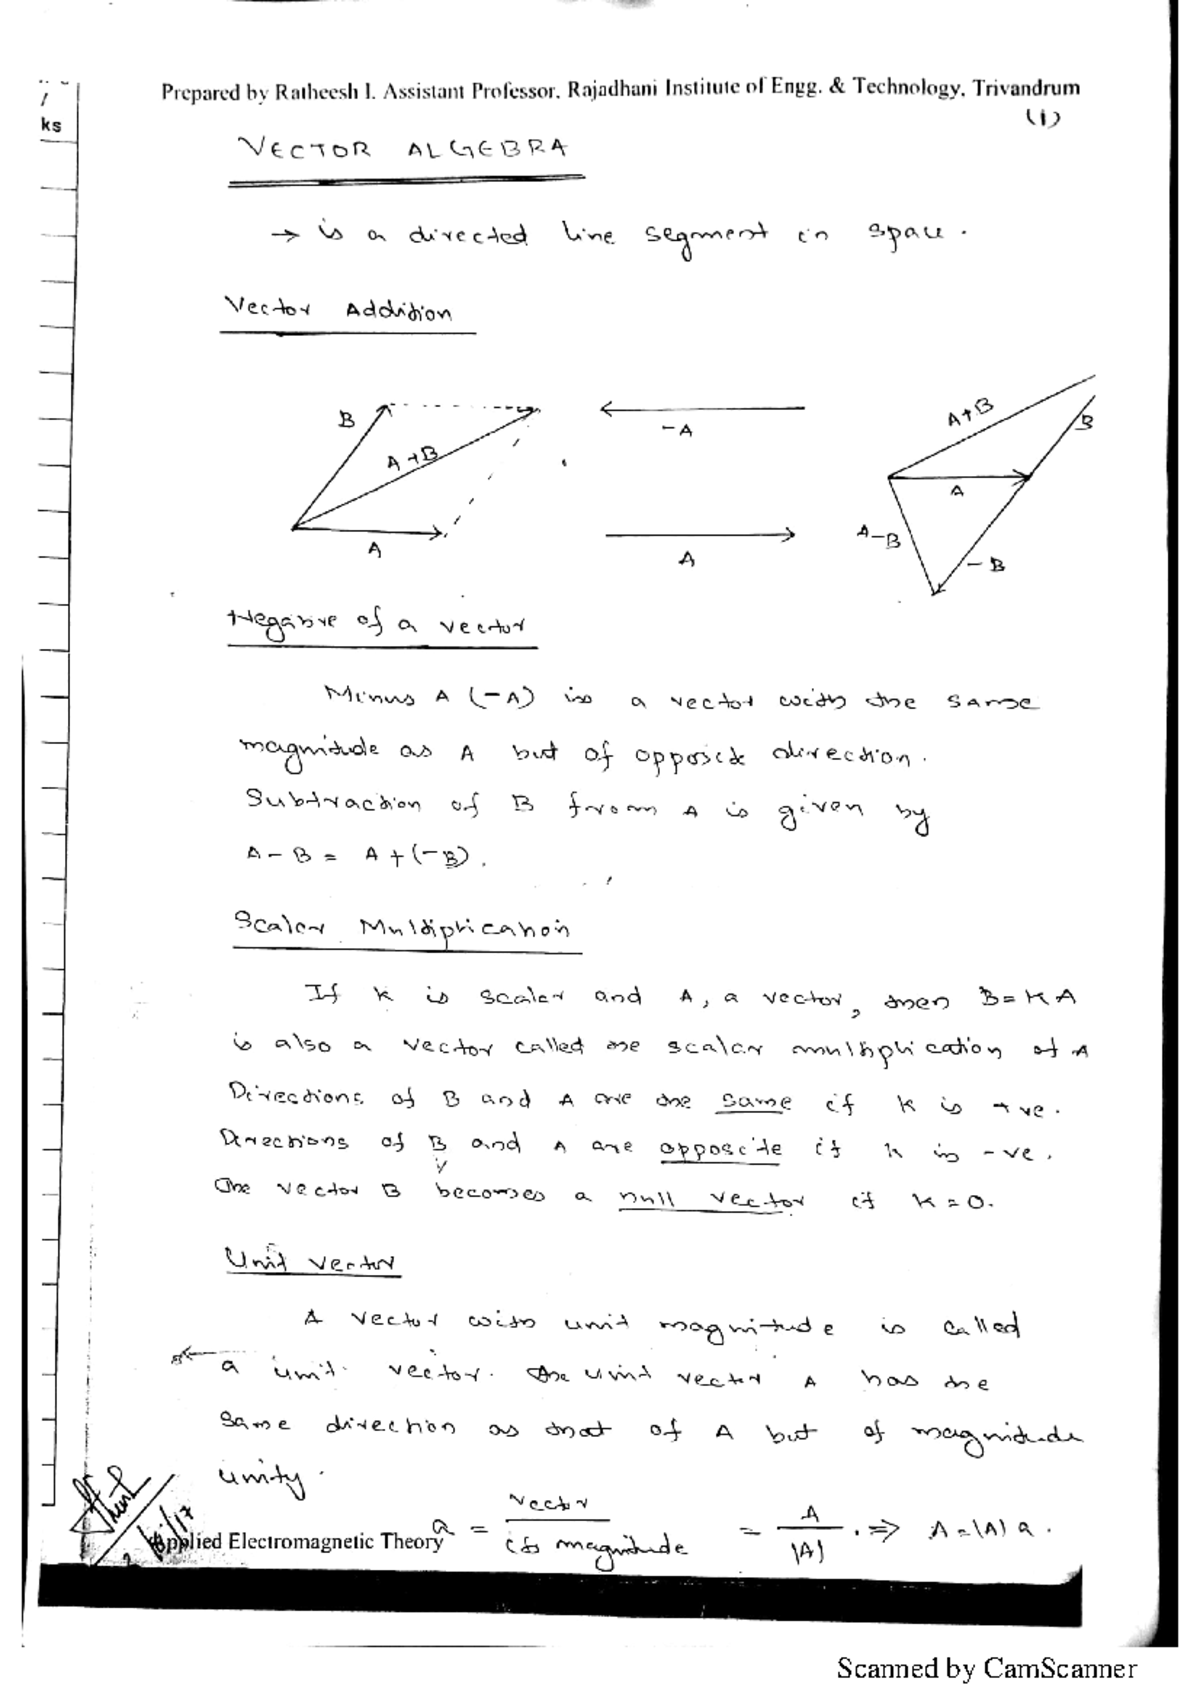 ks
Prepared by Ratheesh I. Assistant Professor. Rajadhani Institute of Engg. & Technology, Trivandrum
(i)
VECTOR ALGEBRA
→ is a directed line segment in space.
Vector Addition
B
A+B
A
-A
A
A+B
B
A
A-B
-B
Negative of a vector
Minus A (-A) is a vector with the same
magnitude as A but of opposite direction.
Subtraction of B from A is given by
A - B = A + (-B).
Scalar Multiplication
If K is scalar and A, a vector, then B = KA
is also a vector called the scalar multiplication of A
Directions of B and A are the same if K is +ve.
Directions of B and A are opposite if K is -ve.
The vector B becomes a null vector if K = 0.
Unit Vector
A vector with unit magnitude is called
a unit vector. The unit vector A has the
same direction as that of A but of magnitude
unity.
a = vector / its magnitude = A / |A| . ⇒ A = |A| a.
Applied Electromagnetic Theory
Scanned by CamScanner